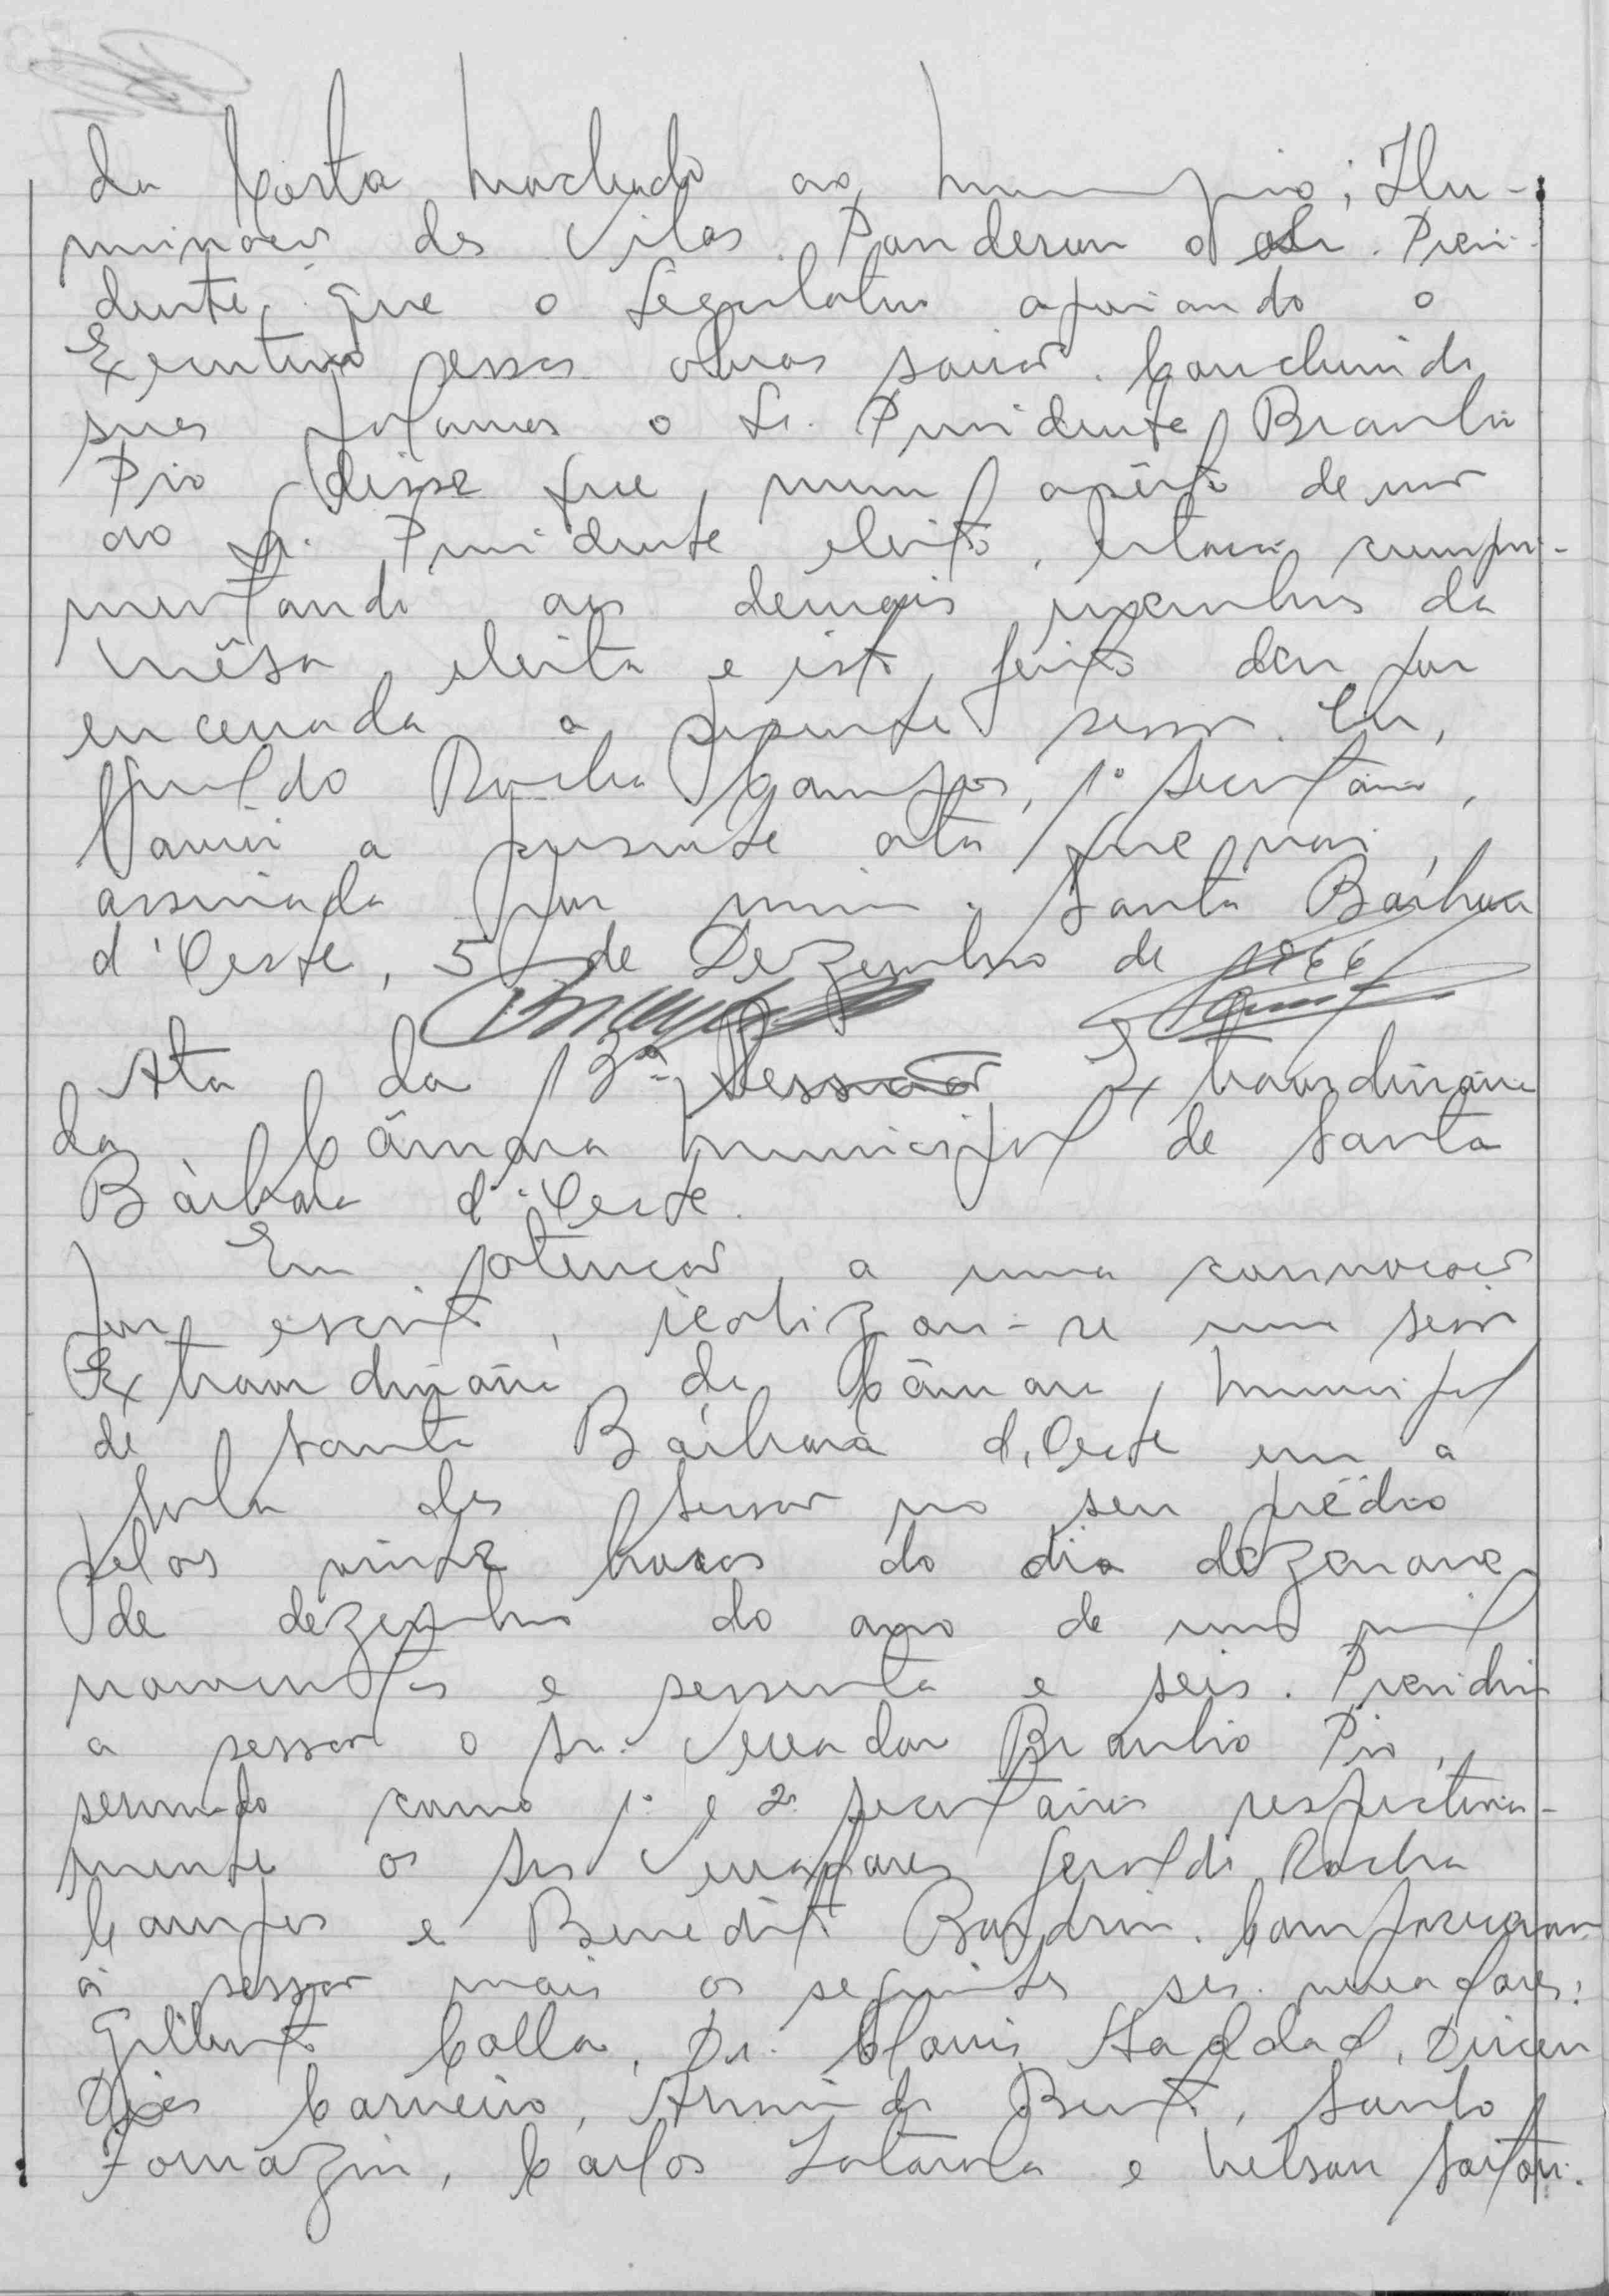 da Costa Machado ao município; Ilu-
minação das Vilas. Ponderou o sr. Presi-
dente, que o Legislativo apoiando o
Executivo essas obras sairão. Concluindo
suas palavras o Sr. Presidente Braulio
Pio disse que, num apêrto de mão
ao Sr. Presidente eleito, estava cumpri-
mentando aos demais membros da
Mêsa eleita e isto feito deu por
encerrada a presente sessão. Eu,
Geraldo Rocha Campos, 1º Secretário,
lavrei a presente ata que vai
assinada por mim. Santa Bárbara
d'Oeste, 5 de Dezembro de 1966
Ata da 13ª Sessão Extraordinária
da Câmara Municipal de Santa
Bárbara d'Oeste.
Em atenção, a uma convocação
por escrito, realizou-se uma sessão
Extraordinária da Câmara Municipal
de Santa Bárbara d'Oeste em a
sala das Sessões no seu prédio
pelas vinte horas do dia dezenove
de dezembro do ano de um mil
novecentos e sessenta e seis. Presidiu
a sessão o Sr. Vereador Braulio Pio,
servindo como 1º e 2º secretários respectiva-
mente os Srs Vereadores Geraldo Rocha
Campos e Benedito Bordrin. Compareceram
à sessão mais os seguintes srs. vereadores:
Gilberto Colla, Dr. Clovis Haddad, Dirceu
Dias Carneiro, Armindo Bento, Santo
Fornazin, Carlos e Nelson Sartori.